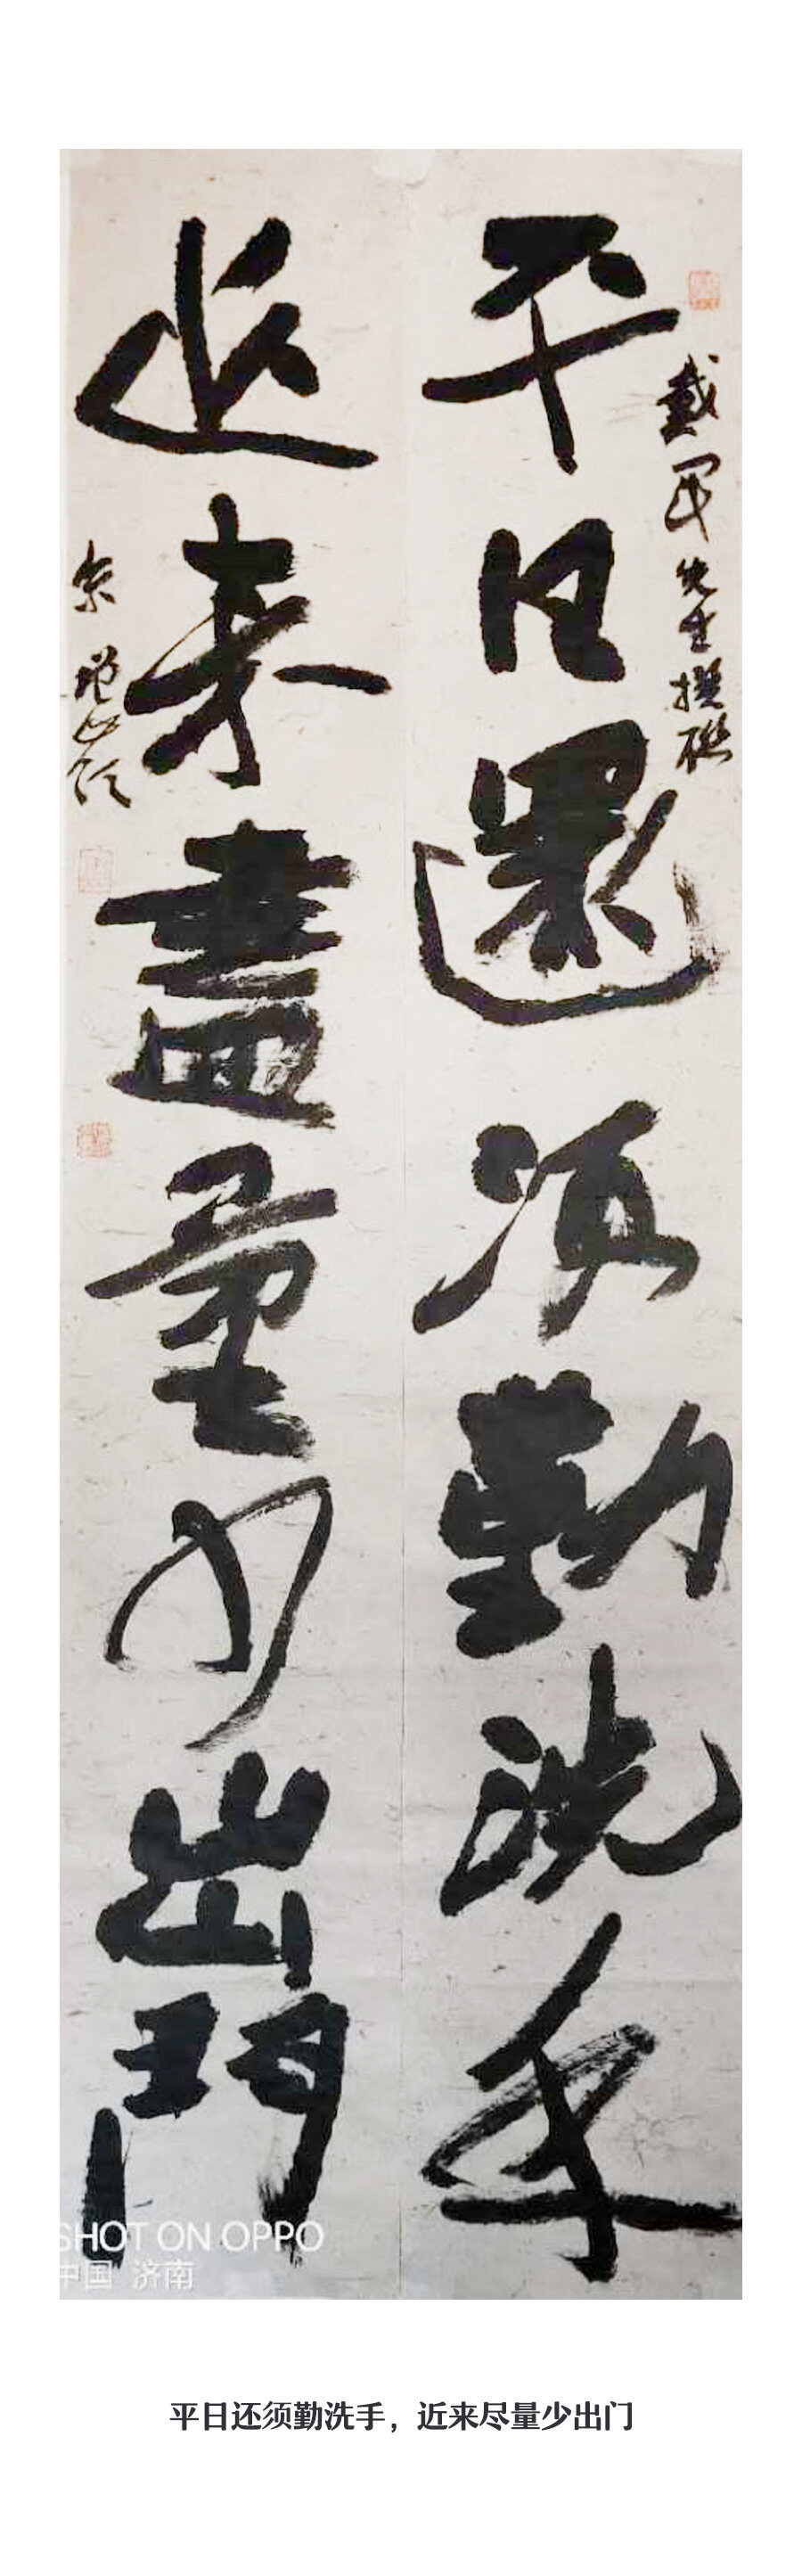 平日還須勤洗手
戴軍先生撰聯
近来盡量少出門
SHOT ON OPPO
中国 济南
平日还须勤洗手，近来尽量少出门